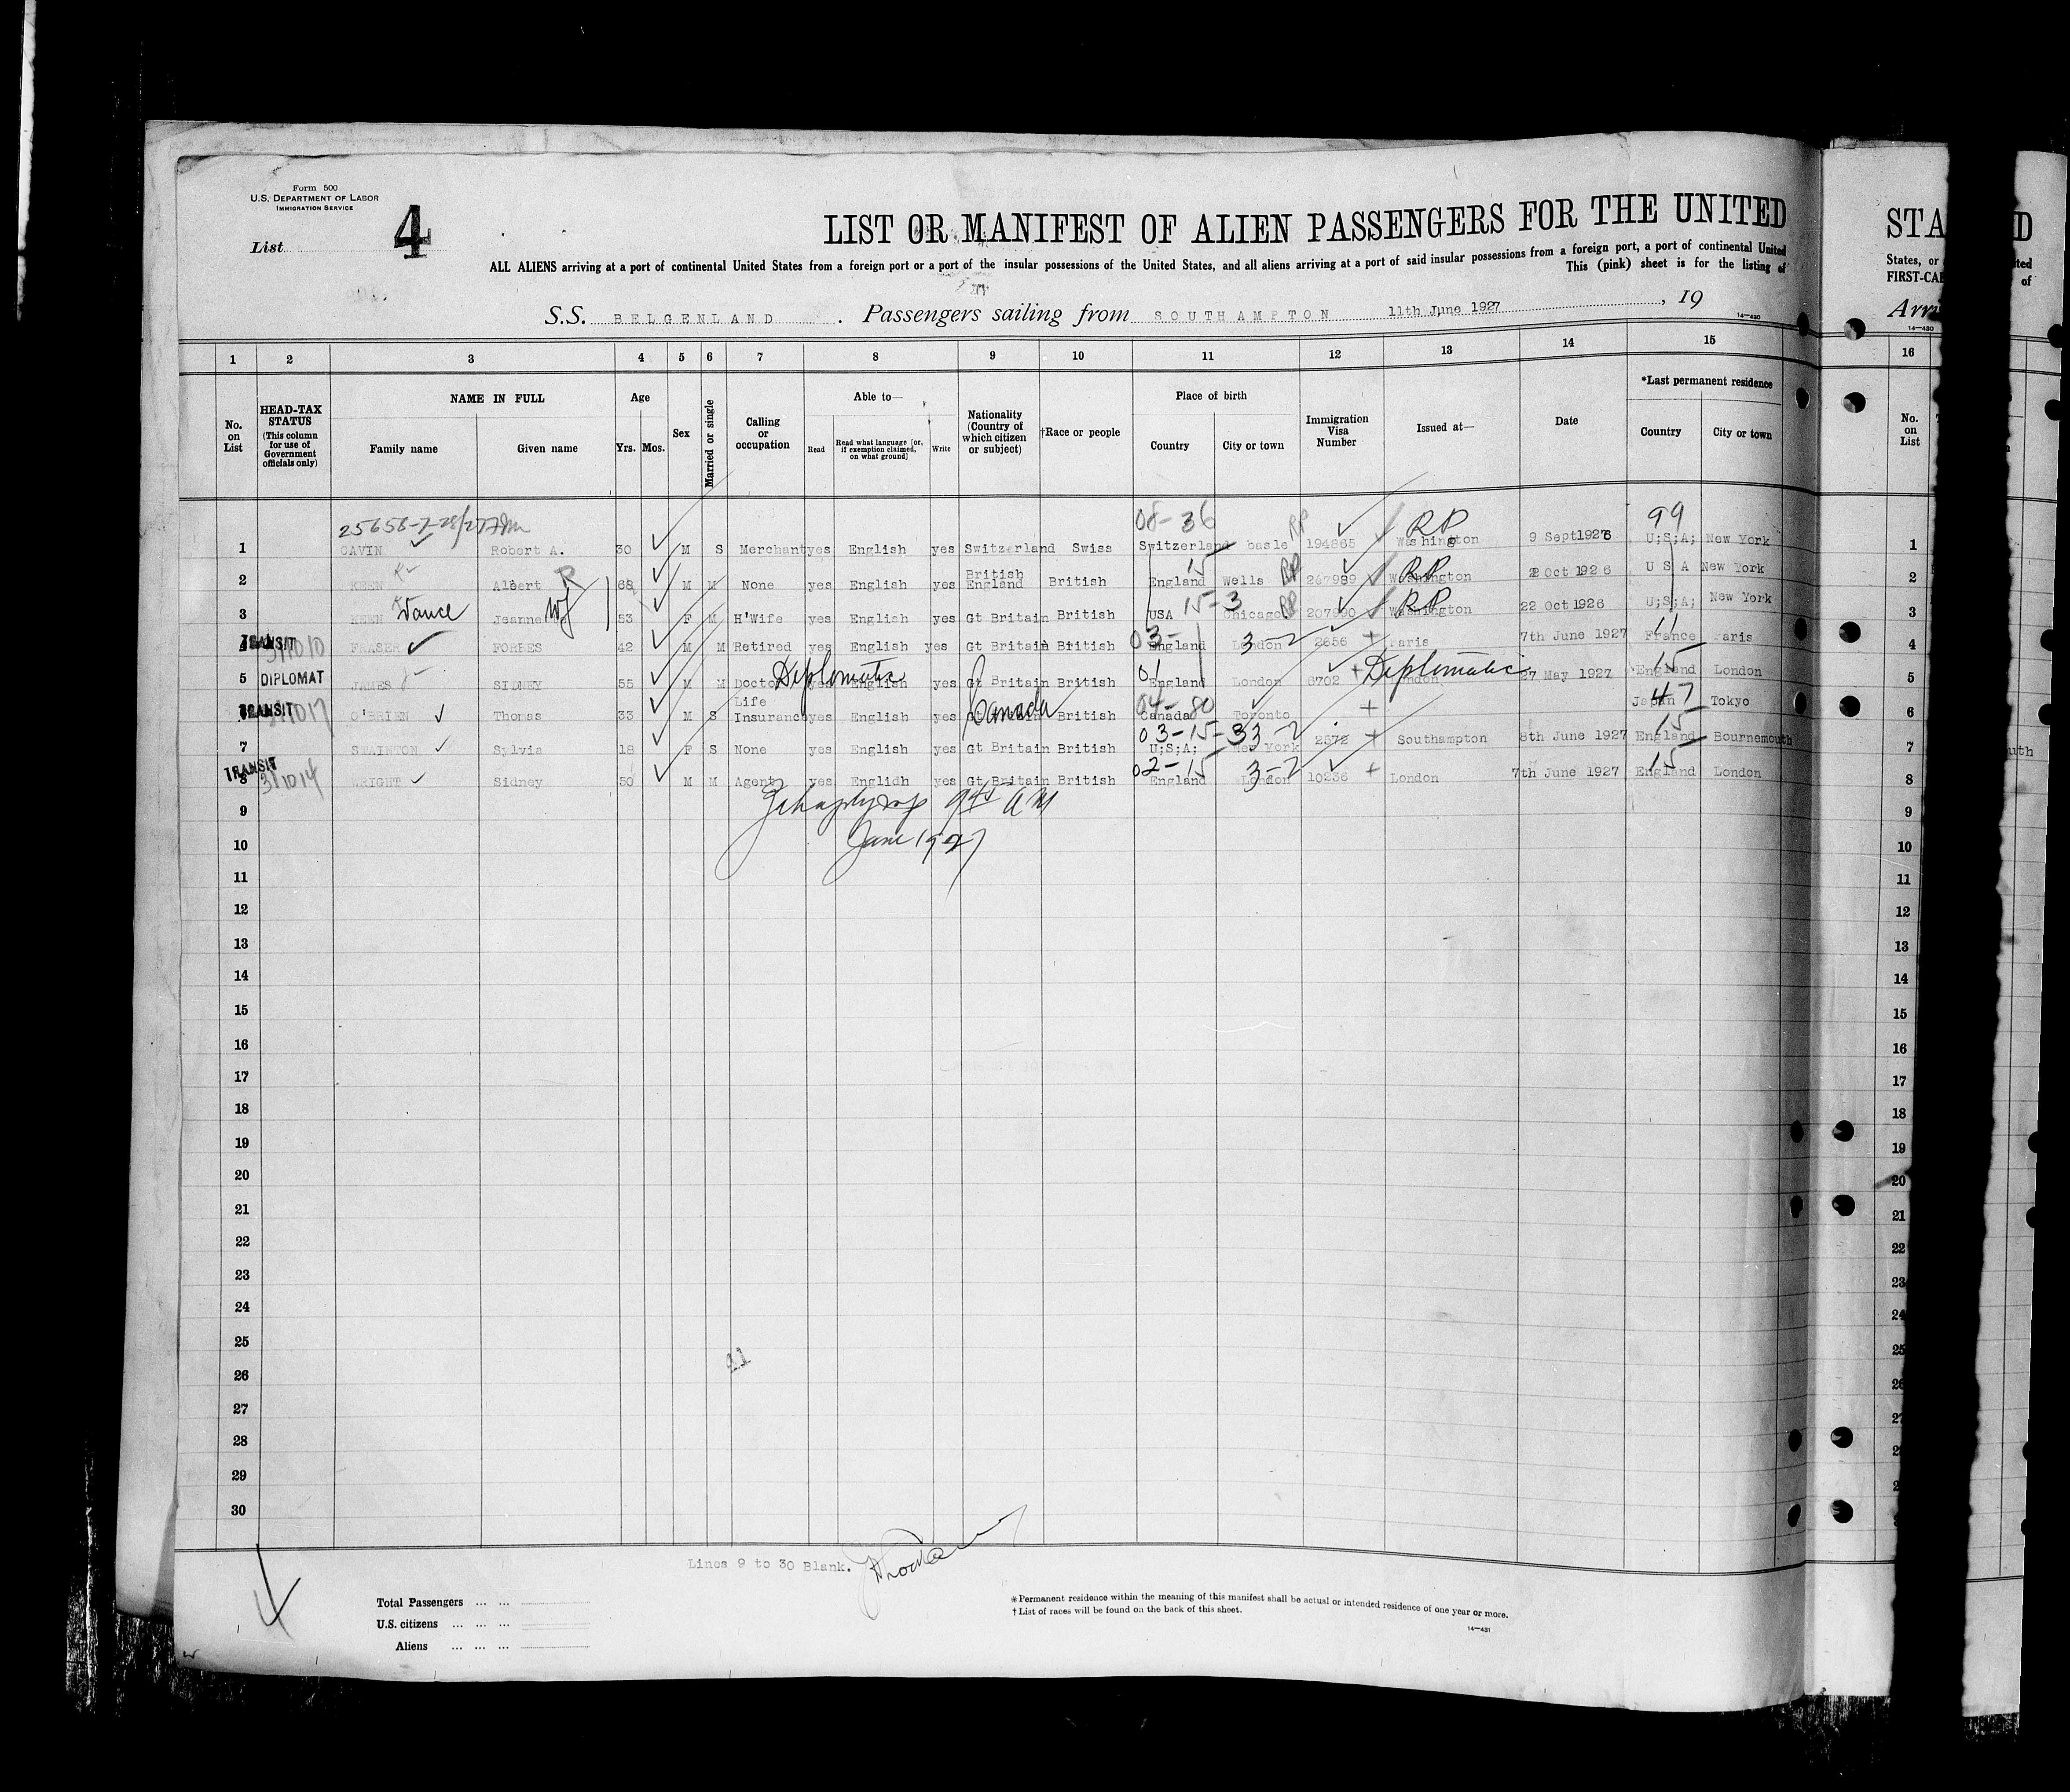 Form 500
U.S. DEPARTMENT OF LABOR
IMMIGRATION SERVICE
List 4
LIST OR MANIFEST OF ALIEN PASSENGERS FOR THE UNITED
ALL ALIENS arriving at a port of continental United States from a foreign port or a port of the insular possessions of the United States, and all aliens arriving at a port of said insular possessions from a foreign port, a port of continental United
This (pink) sheet is for the listing of
S.S. BELGENLAND . Passengers sailing from SOUTHAMPTON 11th June 1927 , 19
14—430
1 2 3 4 5 6 7 8 9 10 11 12 13 14 15
No. on List
HEAD-TAX STATUS (This column for use of Government officials only)
NAME IN FULL
Family name Given name
Age
Yrs. Mos.
Sex
Married or single
Calling or occupation
Able to—
Read
Read what language [or, if exemption claimed, on what ground]
Write
Nationality (Country of which citizen or subject)
†Race or people
Place of birth
Country City or town
Immigration Visa Number
Issued at—
Date
*Last permanent residence
Country City or town
08-36 RP RP 99
1 Robert A. 30 M S Merchant yes English yes Switzerland Swiss Switzerland basle 194865 Washington 9 Sept1926 U;S;A; New York
15 RP RP
2 KEEN Albert 68 M M None yes English yes British England British England Wells Washington Oct 1926 U S A New York
15-3 RP RP
3 KEEN Jeanne 53 F M H'Wife yes English yes Gt Britain British USA Chicago 207990 Washington 22 Oct 1926 U;S;A; New York
TRANSIT 03- 3-2 11
4 FRASER FORBES 42 M M Retired yes English yes Gt Britain British England London 2656 Paris 7th June 1927 France Paris
Diplomatic Diplomatic 15
5 DIPLOMAT JAMES SIDNEY 55 M M Doctor yes English yes Gt Britain British England London 6702 London 27 May 1927 England London
TRANSIT Canada 04-80 47
6 O'BRIEN Thomas 33 M S Life Insurance yes English yes British Canada Toronto Japan Tokyo
03-15-33-2 15
7 Sylvia 18 F S None yes English yes Gt Britain British U;S;A; New York 2572 Southampton 8th June 1927 England Bournemouth
TRANSIT 02-15 3-2 15
8 WRIGHT Sidney 50 M M Agent yes Englidh yes Gt Britain British England London 10236 London 7th June 1927 England London
9
10
11
12
13
14
15
16
17
18
19
20
21
22
23
24
25
26
27
28
29
30
Lines 9 to 30 Blank.
Total Passengers ... ...
U.S. citizens ... ... ...
Aliens ... ... ...
*Permanent residence within the meaning of this manifest shall be actual or intended residence of one year or more.
†List of races will be found on the back of this sheet.
14—431
STA
States, or
FIRST-CAB
Arri
14—430
16
No. on List
1
2
3
4
5
6
7
8
9
10
11
12
13
14
15
16
17
18
19
20
21
22
23
24
25
26